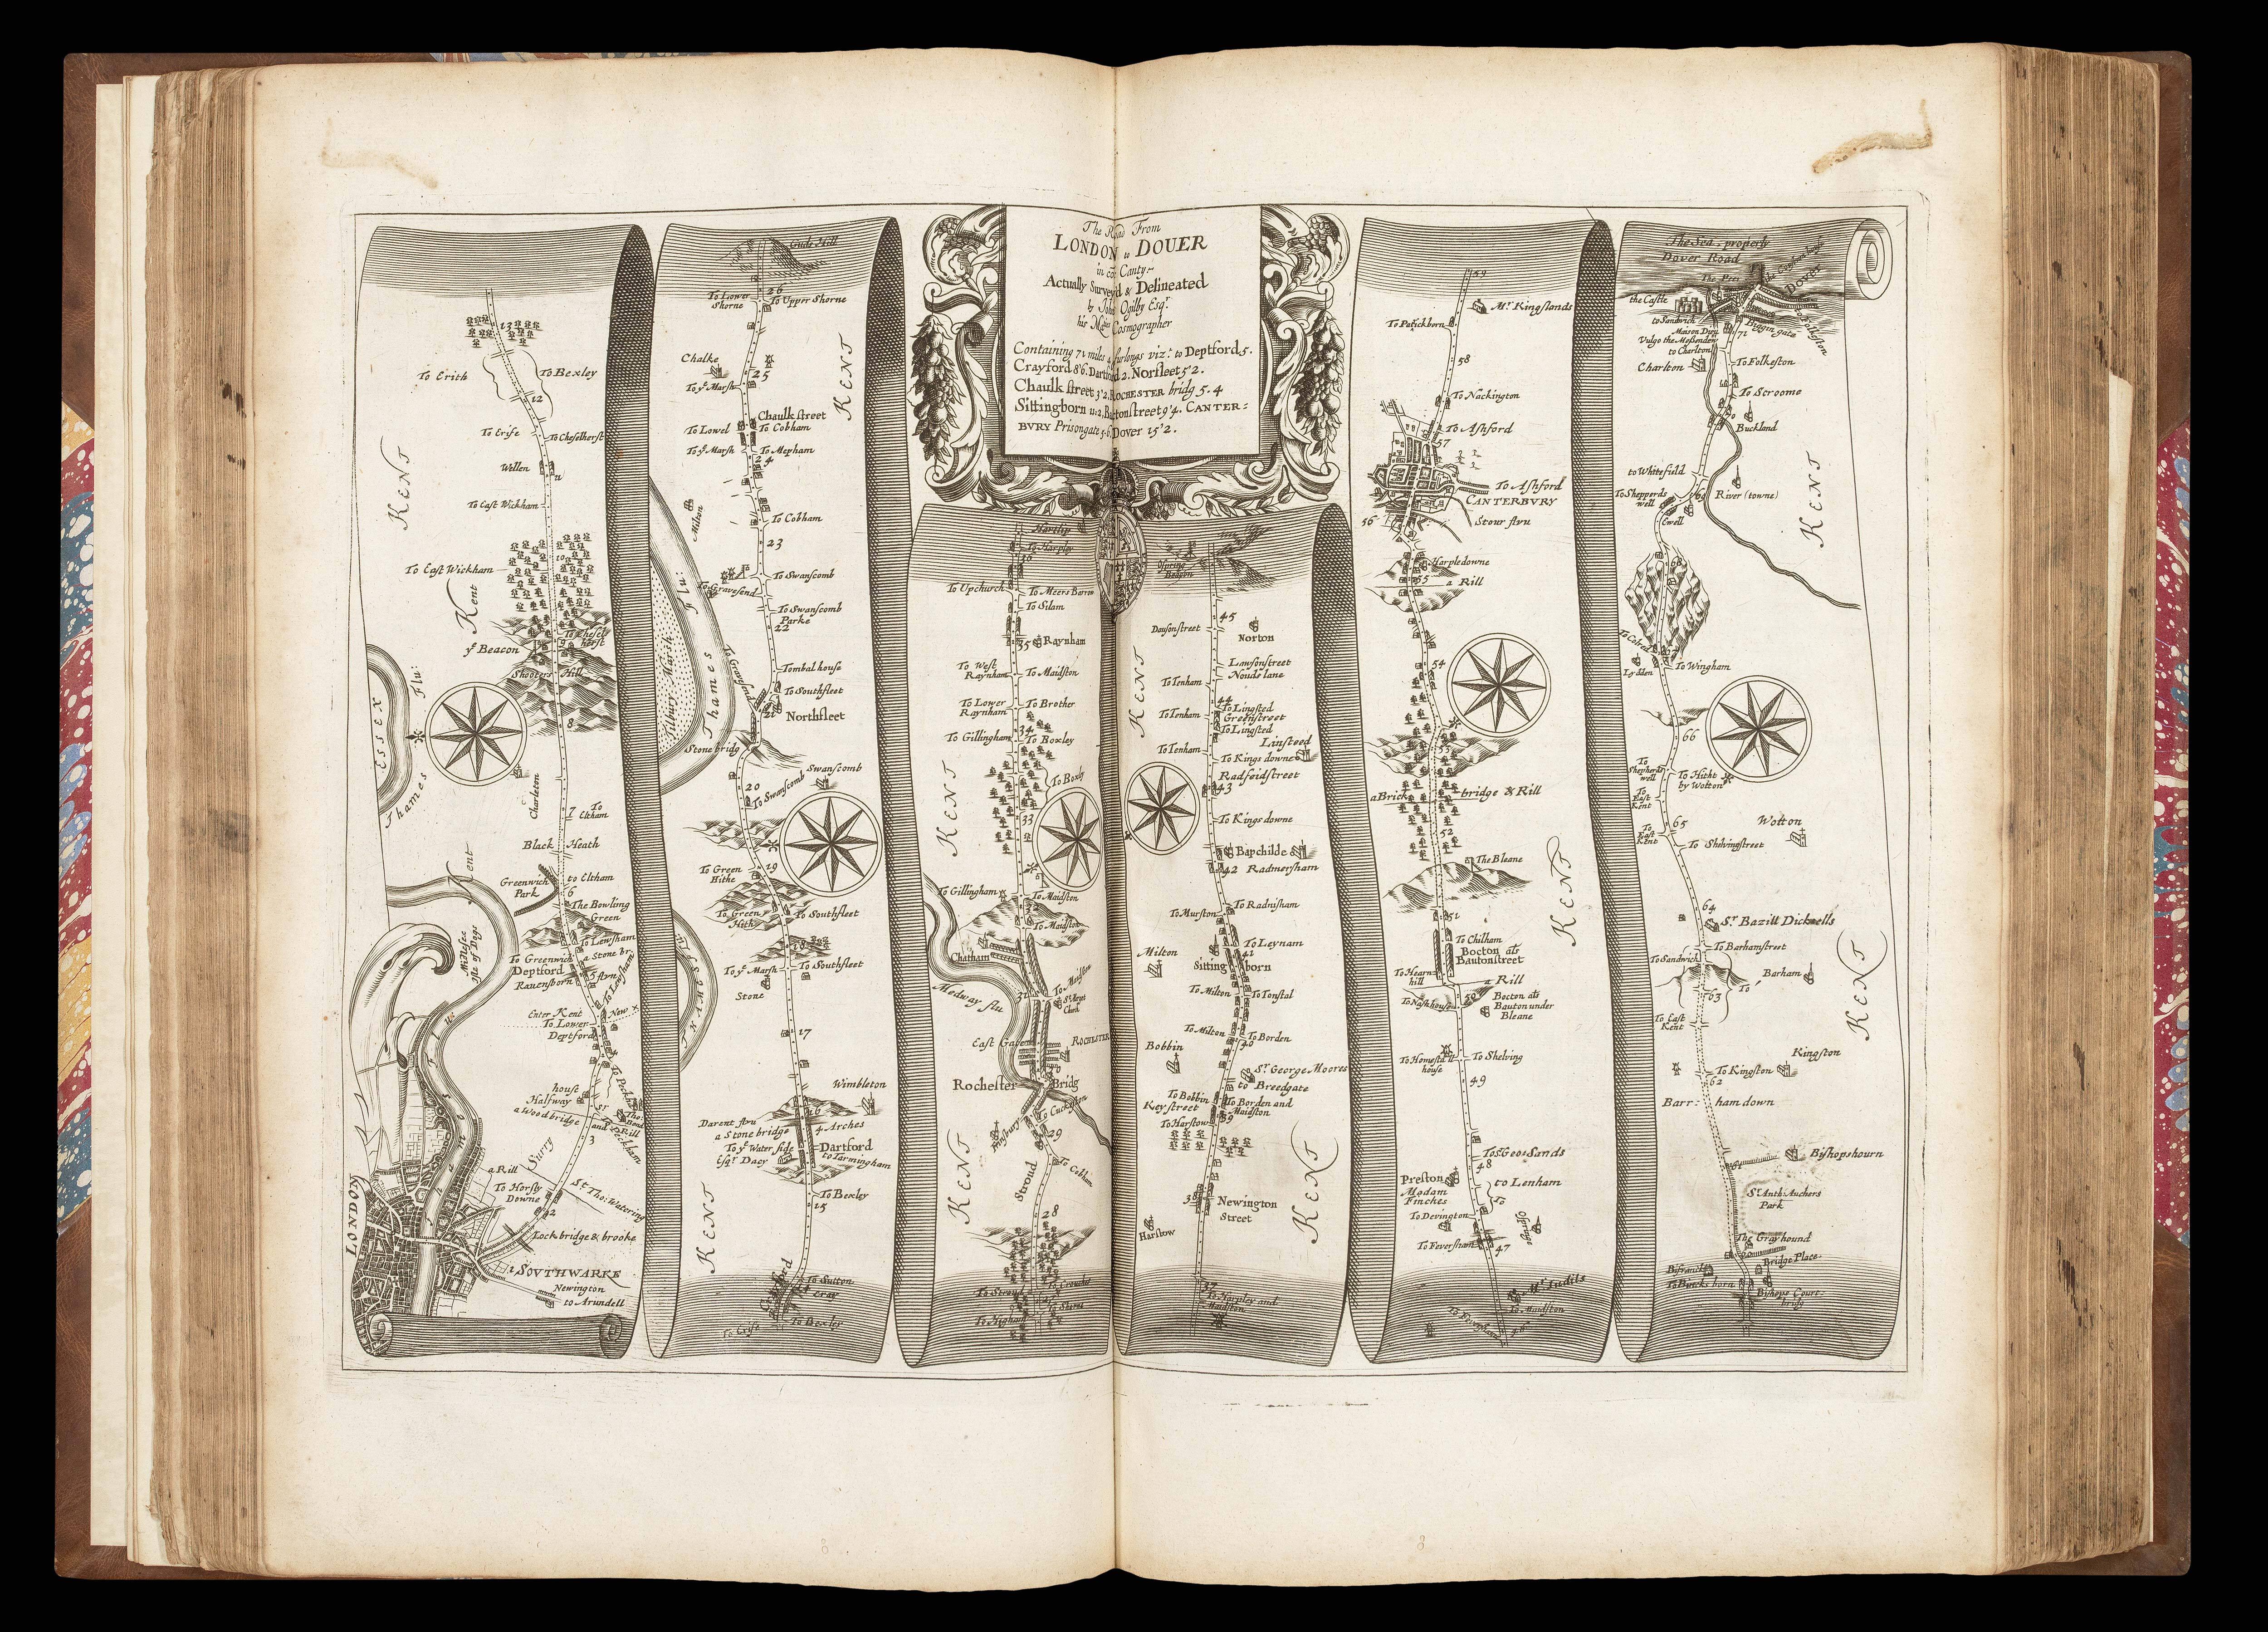 The Road From
LONDON to DOUER
in com̃ Canty
Actually Surveyd & Delineated
by John Ogilby Esqr.
his Maties Cosmographer
Containing 71 miles 4 furlongs viz.t to Deptford 5.
Crayford 8'6. Dartford 2. Norfleet 5'2.
Chaulk street 3'2. ROCHESTER bridg 5.4
Sittingborn 11.2. Bautonstreet 9'4. CANTER=
BVRY Prisongate 5.6. Dover 15'2.
13
To Erith
To Bexley
12
To Erife
To Cheselherst
Wellen
11
To East Wickham
KENT
10
To East Wickham
Kent
ye Beacon
9
To Chesel
horst
Shooters Hill
Essex
Flu:
Thames
8
Charleton
7
To
Eltham
Black Heath
Kent
Greenwich
Park
to Eltham
6
The Bowling
Green
To Lewsham
To Greenwich
a Stone br
Deptford
Ravensborn
5
flu
To Lewsham
Midlesex
Isle of Dogs
Enter Kent
New X
To Lower
Deptford
4
To Peckham
house
Halfway
a Wood bridge
a Rill
To Peckham
3
Surry
a Rill
To Horsly
Downe
St Tho: Watering
2
Lock bridge & brooke
LONDON
1
SOVTHWARKE
Newington
to Arundell
Gads Hill
26
To Lower
Shorne
To Upper Shorne
Chalke
25
To ye Marsh
KENT
Chaulk street
To Lowel
To Cobham
To ye Marsh
To Mepham
24
Milton
To Cobham
23
To Swanscomb
To Gravesend
To Swanscomb
Parke
22
Flu:
Tilbury Marsh
Thames
To Gravesend
Tombal house
To Southfleet
21
Northfleet
Stone bridg
Swanscomb
20
To Swanscomb
19
To Green
Hithe
To Green
Hith
To Southfleet
18
To ye Marsh
To Southfleet
Stone
THAMESIS
17
Wimbleton
16
Darent flu
a Stone bridge
4 Arches
To ye Water side
Dartford
Esqr Dacy
to Farmingham
To Bexley
15
KENT
Crayford
To Sutton
Cray
14
To Erif
To Bexley
Hartlip
To Harpley
36
To Upchurch
To Meers Borrow
To Silam
35
Raynham
To West
Raynham
To Maidston
To Lower
Raynham
To Brother
34
To Gillingham
To Boxley
KENT
To Boxly
33
To Gillingham
To Maidston
32
To Maidston
Chatham
Medway flu
31
To Maidston
St Margts
Church
East Gate
ROCHESTER
30
Rochester
Bridg
To Cuckston
29
KENT
Stroud
To Cobham
28
To Stroud
27
To Shorne
To Higham
Spring
Beacon
45
Dausonstreet
Norton
KENT
Lawsonstreet
Noude lane
To Tenham
44
To Lingsted
To Tenham
Greenstreet
To Lingsted
Linsteed
To Tenham
To Kings downe
Radfordstreet
43
To Kings downe
Bapchilde
42
Radmersham
To Murston
To Radnisham
To Leynam
41
Milton
Sitting born
To Milton
To Tonstal
To Milton
To Borden
40
Bobbin
Sr George Moores
to Breedgate
To Bobbin
To Borden and
Maidston
Key street
39
To Harstow
KENT
38
Newington
Street
Harstow
37
To Harpley and
Maidston
59
Mr Kingslands
To Patrickborn
58
To Nackington
To Ashford
57
To Ashford
CANTERBVRY
56
Stour flu
Harpledowne
55
a Rill
54
53
a Brick
bridge & Rill
52
The Bleane
KENT
51
To Chilham
Bocton als
Bautonstreet
To Hearn
hill
a Rill
To Nashhouse
50
Bocton als
Bauton under
Bleane
To Homestall
house
To Shelving
49
To Sr Geo: Sands
48
Preston
to Lenham
Madam
Finches
To Devington
Ospring
To Feversham
47
Mr Iudils
To Maidston
To Feversham
46
The Sea properly
Dover Road
The Peer
DOVER
the Castle
to Sandwich
Maison Dieu
Vulgo the Mesendew
to Charlton
Biggin gate
to Folkeston
71
Charlton
To Folkeston
To Scroome
70
Buckland
KENT
to Whitefield
To Shepperds
well
69
River (towne)
Ewell
68
To Colred
67
Lydden
To Wingham
66
To
Shepherds
well
To Hitht
by Wotton
To
East
Kent
65
To
East
Kent
Wotton
To Shelvingstreet
64
Sr Bazill Dickwells
To Barhamstreet
To Sandwich
Barham
To
63
To East
Kent
KENT
Kingston
To Kingston
62
Barr: ham down
61
Bishopsbourn
Sr Anth: Auchers
Park
The Grayhound
60
Bridge Place
Bifrancks
To Bucksborn
Bishops Court